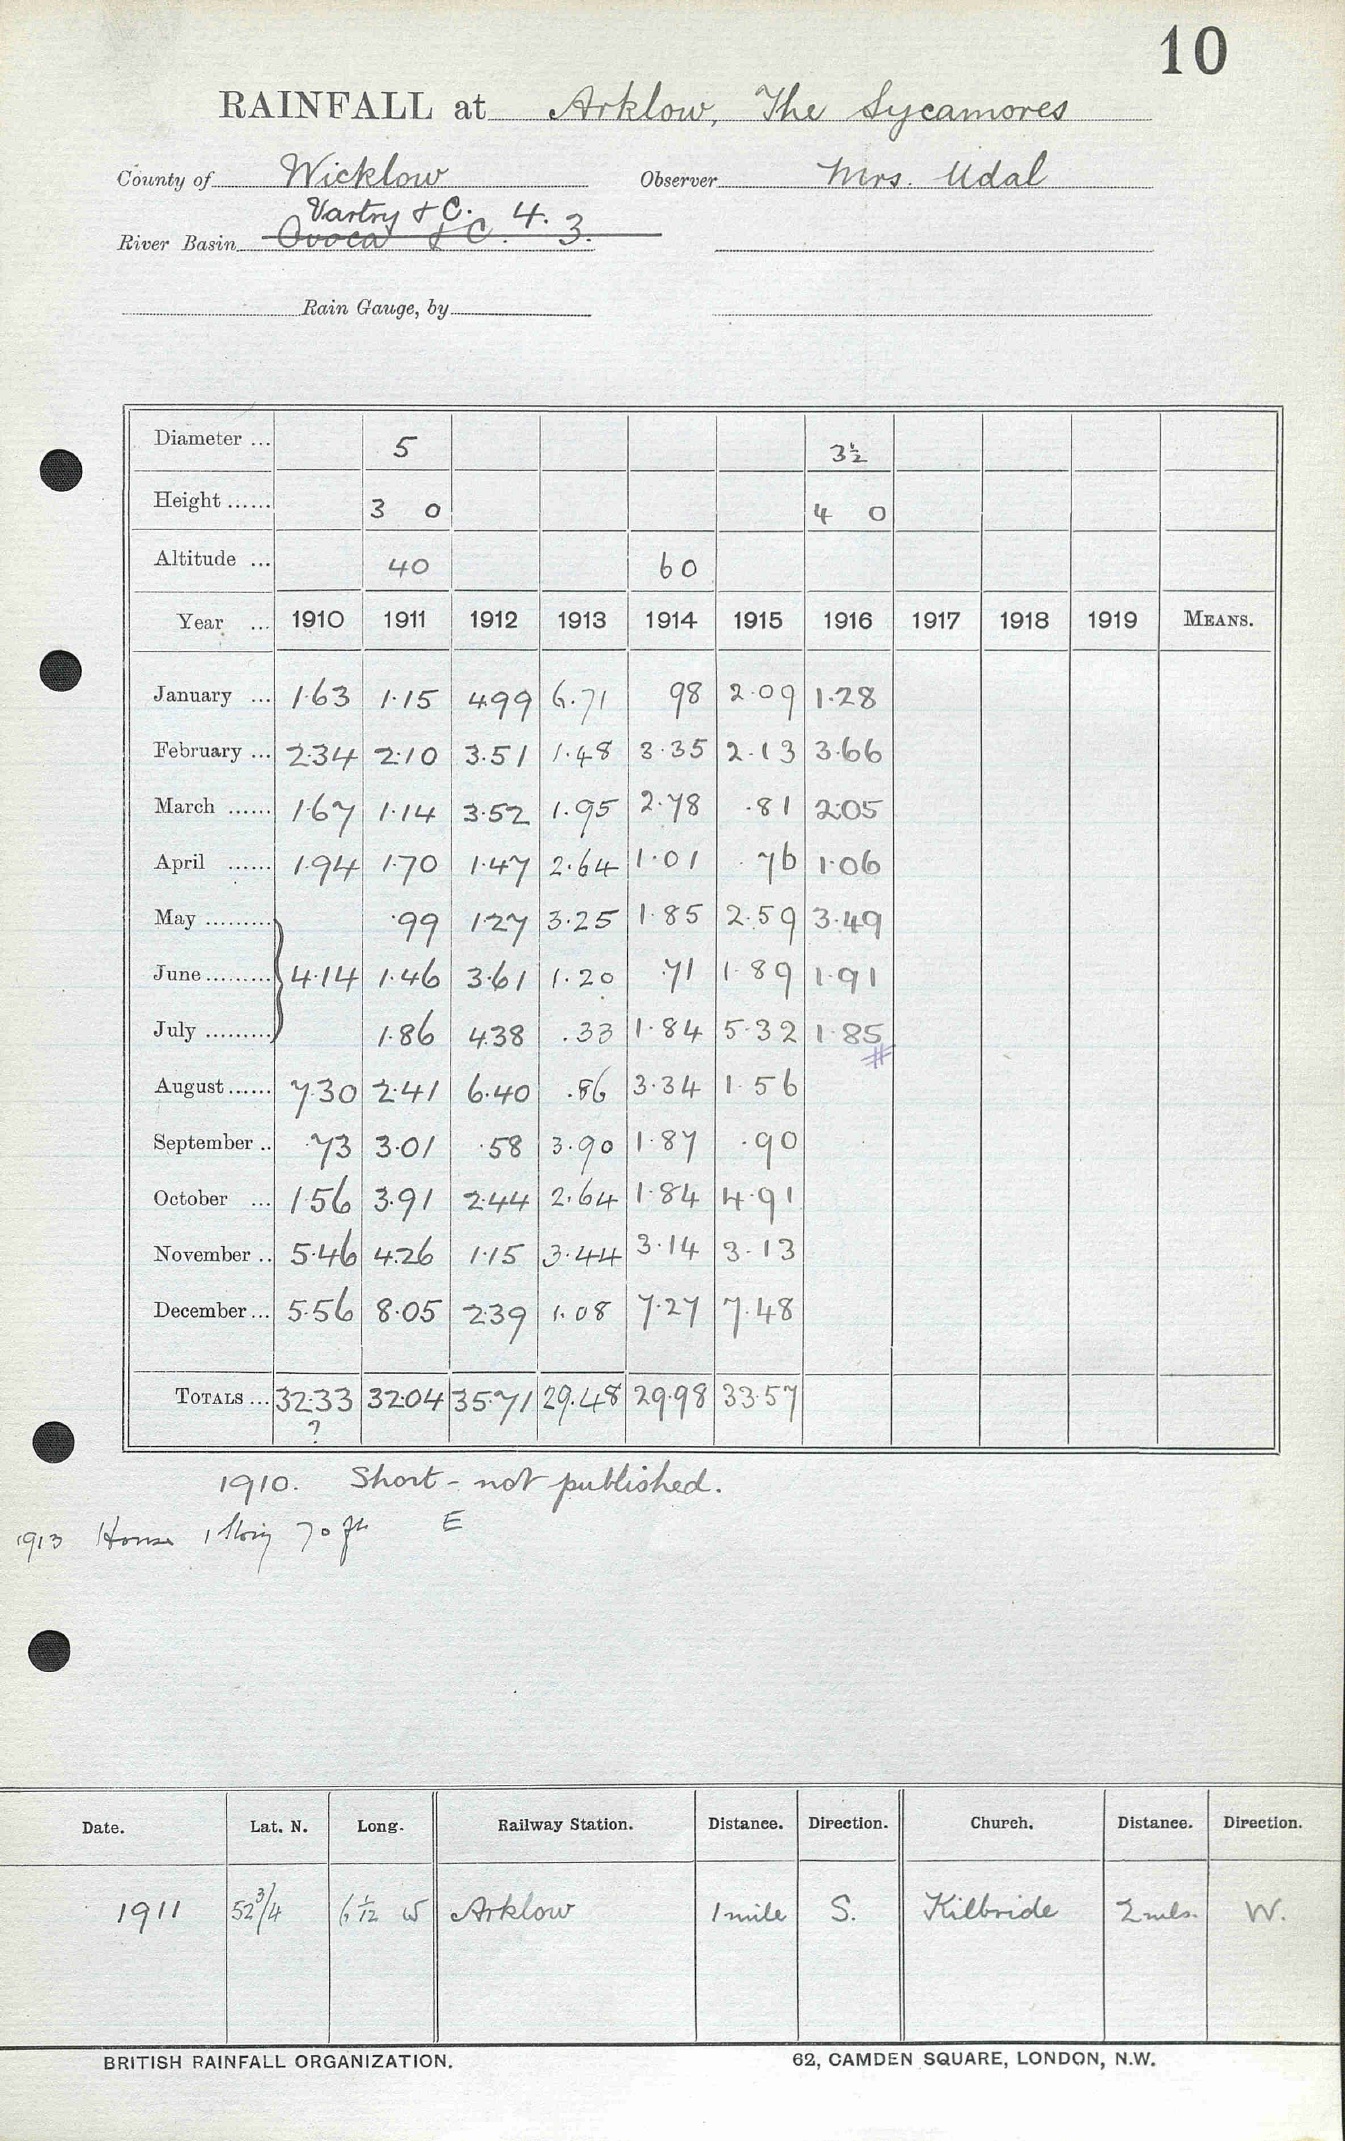 10
RAINFALL at Arklow, The Sycamores
County of Wicklow Observer Mrs. Udal
Vartry & C. 4.
River Basin Ovoca & C. 3.
Rain Gauge, by
Diameter ... 5 3½
Height ...... 3 0 4 0
Altitude ... 40 60
Year ... 1910 1911 1912 1913 1914 1915 1916 1917 1918 1919 MEANS.
January ... 1·63 1·15 4·99 6·71 98 2·09 1·28
February ... 2·34 2·10 3·51 1·48 3·35 2·13 3·66
March ...... 1·67 1·14 3·52 1·95 2·78 ·81 2·05
April ...... 1·94 1·70 1·47 2·64 1·01 ·76 1·06
May ......... ·99 1·27 3·25 1·85 2·59 3·49
June ......... 4·14 1·46 3·61 1·20 ·71 1·89 1·91
July ......... 1·86 4·38 ·33 1·84 5·32 1·85
#
August ...... 7·30 2·41 6·40 ·86 3·34 1·56
September .. ·73 3·01 ·58 3·90 1·87 ·90
October ... 1·56 3·91 2·44 2·64 1·84 4·91
November .. 5·46 4·26 1·15 3·44 3·14 3·13
December ... 5·56 8·05 2·39 1·08 7·27 7·48
TOTALS ... 32·33 32·04 35·71 29·48 29·98 33·57
?
1910. Short - not published.
1913 House 1 Story 70 ft E
Date. Lat. N. Long. Railway Station. Distance. Direction. Church. Distance. Direction.
1911 52 3/4 6 1/12 W Arklow 1 mile S. Kilbride 2 mls. W.
BRITISH RAINFALL ORGANIZATION. 62, CAMDEN SQUARE, LONDON, N.W.